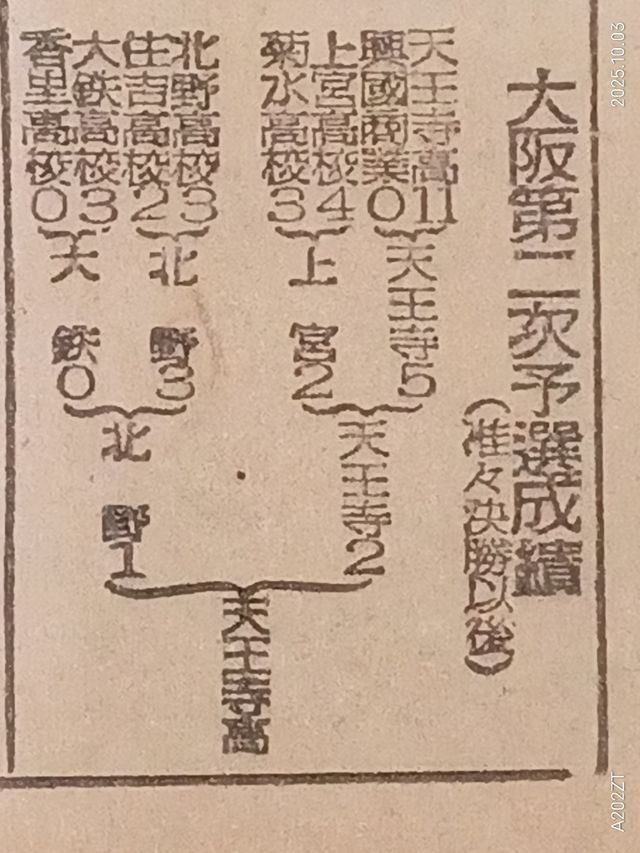 大阪第二次予選成績
（准々決勝以後）
天王寺高11
興國商業0
上宮高校4
菊水高校3
北野高校3
住吉高校2
大鉄高校3
香里高校0
天王寺5
上宮2
北野3
大鉄0
天王寺2
北野1
天王寺高
2025.10.03
A202ZT